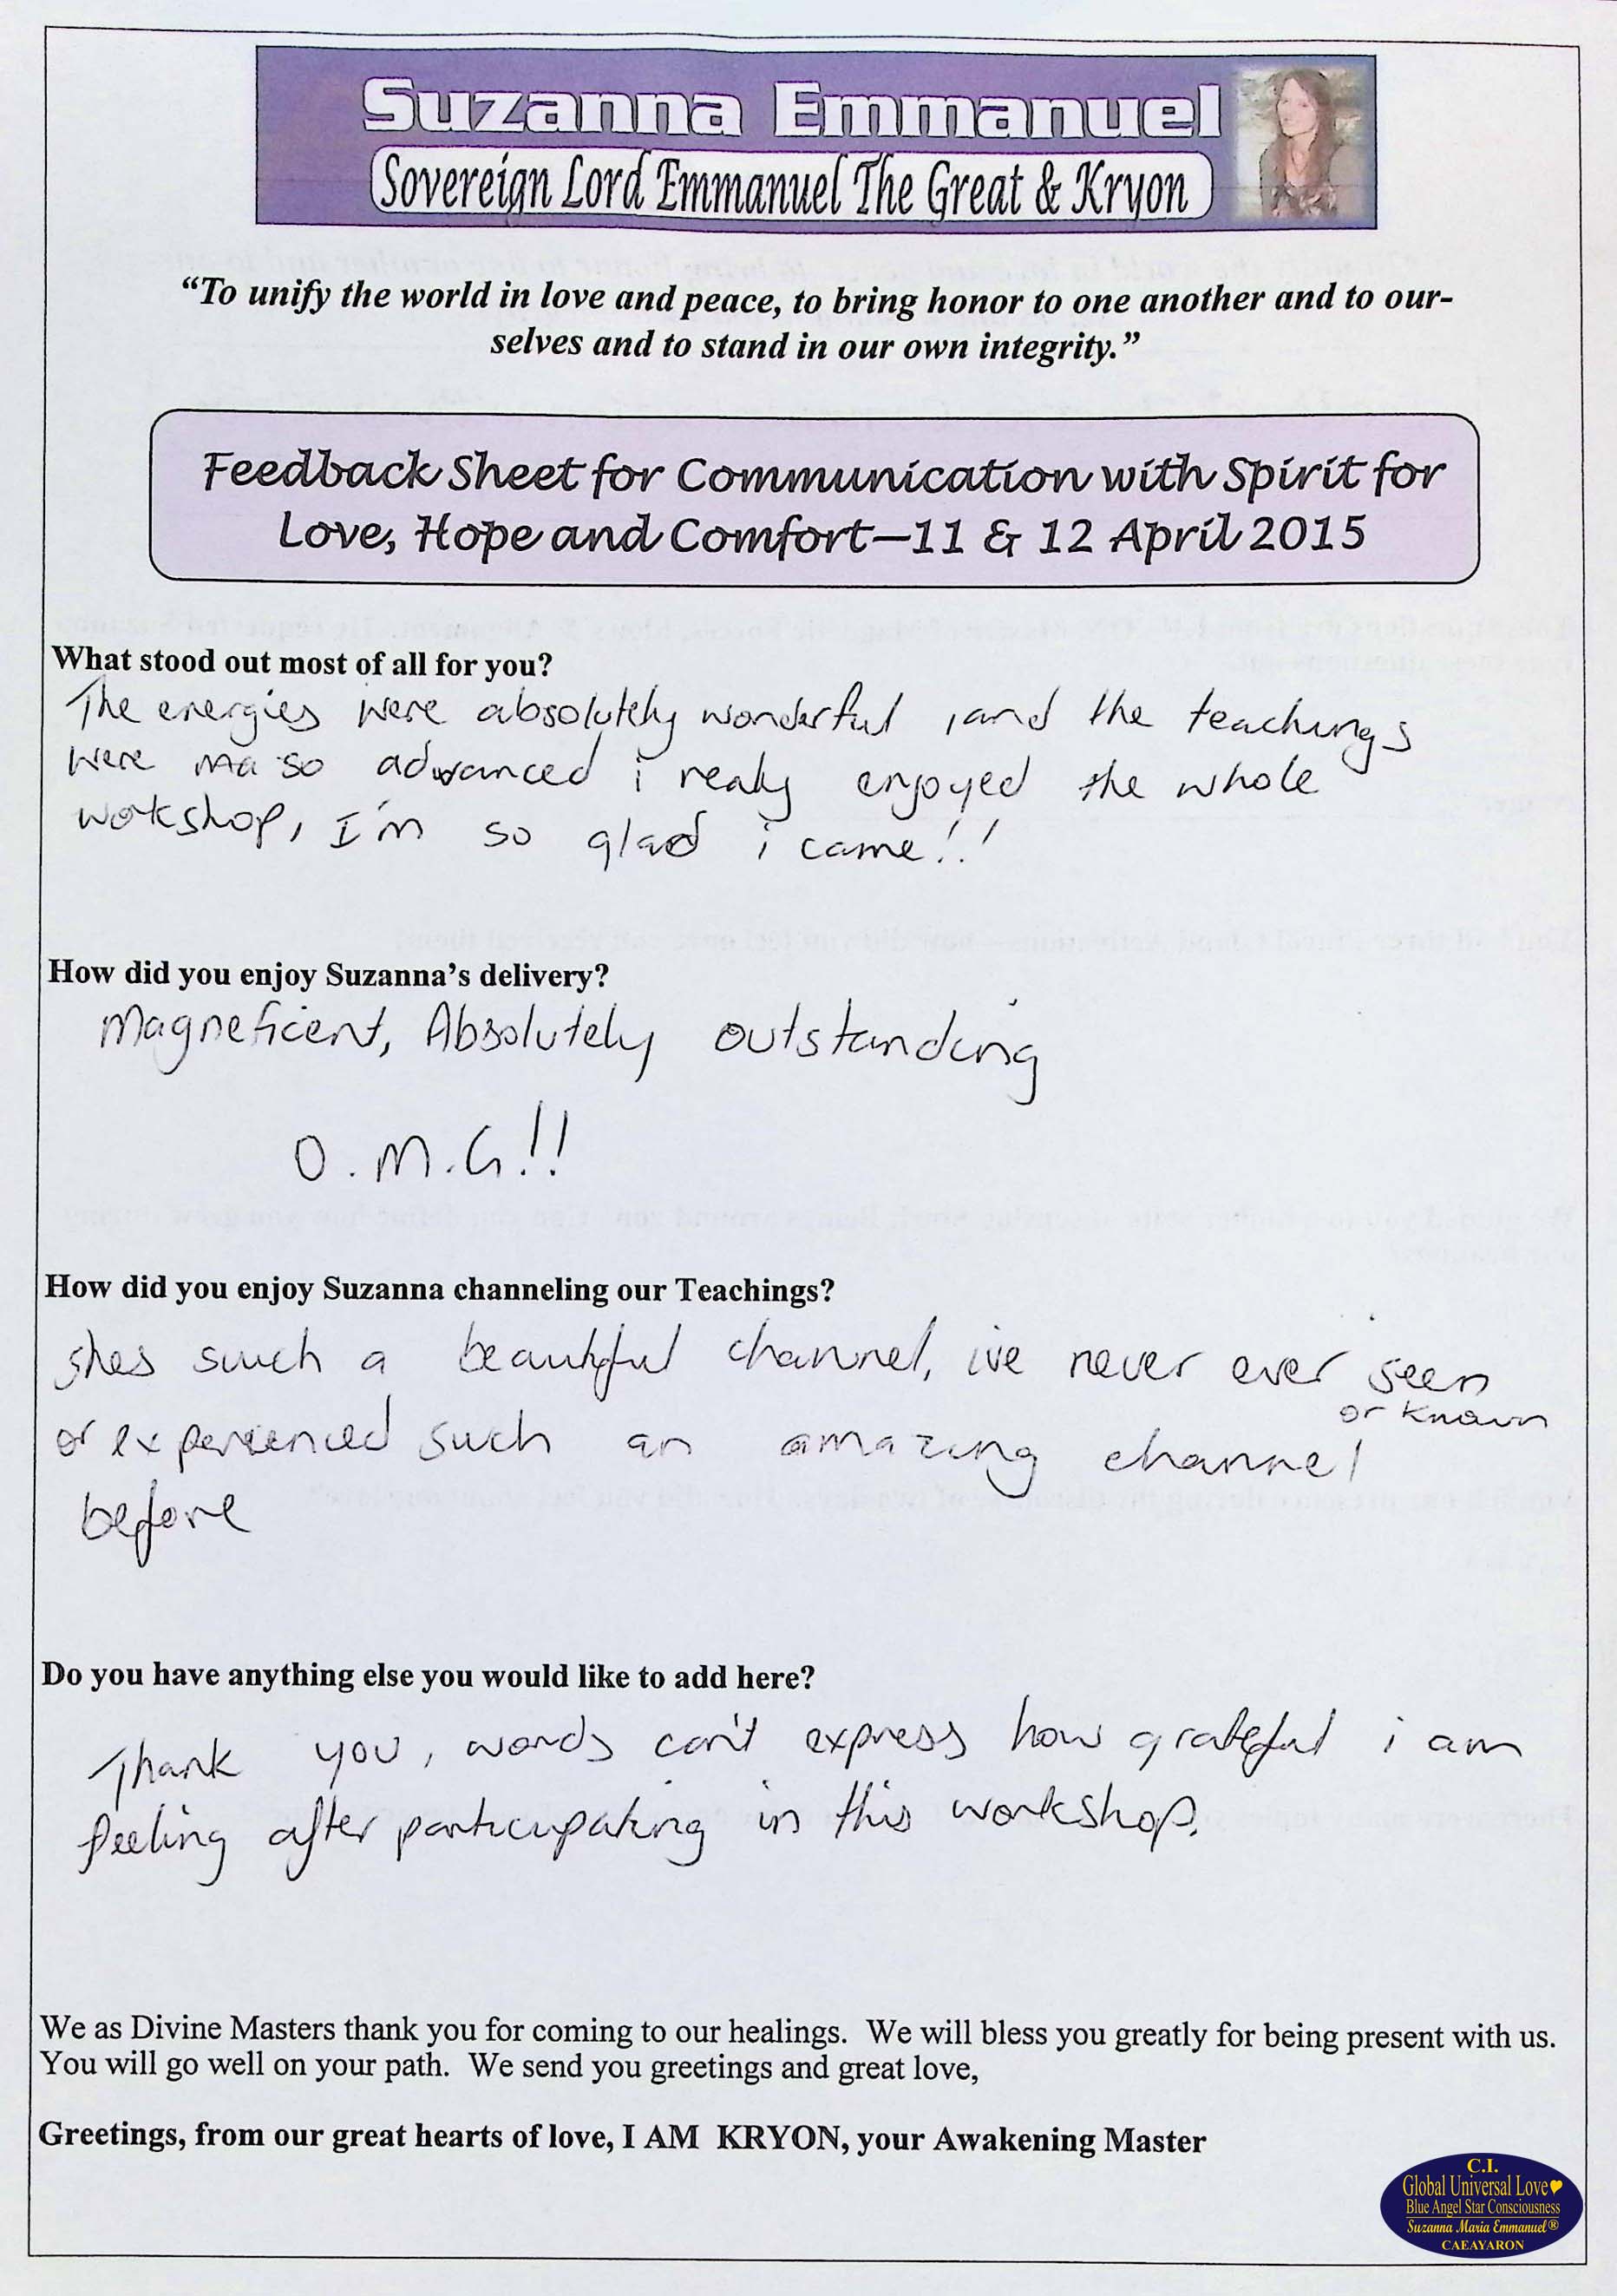 Suzanna Emmanuel
Sovereign Lord Emmanuel The Great & Kryon
“To unify the world in love and peace, to bring honor to one another and to our-
selves and to stand in our own integrity.”
Feedback Sheet for Communication with Spirit for
Love, Hope and Comfort—11 & 12 April 2015
What stood out most of all for you?
The energies were absolutely wonderful, and the teachings
were so advanced i realy enjoyed the whole
workshop, I'm so glad i came!!!
How did you enjoy Suzanna’s delivery?
Magneficent, Absolutely outstanding
O.M.G!!
How did you enjoy Suzanna channeling our Teachings?
shes such a beautiful channel, ive never ever seen
or known
or experienced such an amazing channel
before
Do you have anything else you would like to add here?
Thank you, words can't express how grateful i am
feeling after participating in this workshop.
We as Divine Masters thank you for coming to our healings. We will bless you greatly for being present with us.
You will go well on your path. We send you greetings and great love,
Greetings, from our great hearts of love, I AM KRYON, your Awakening Master
C.I.
Global Universal Love
Blue Angel Star Consciousness
Suzanna Maria Emmanuel®
CAEAYARON